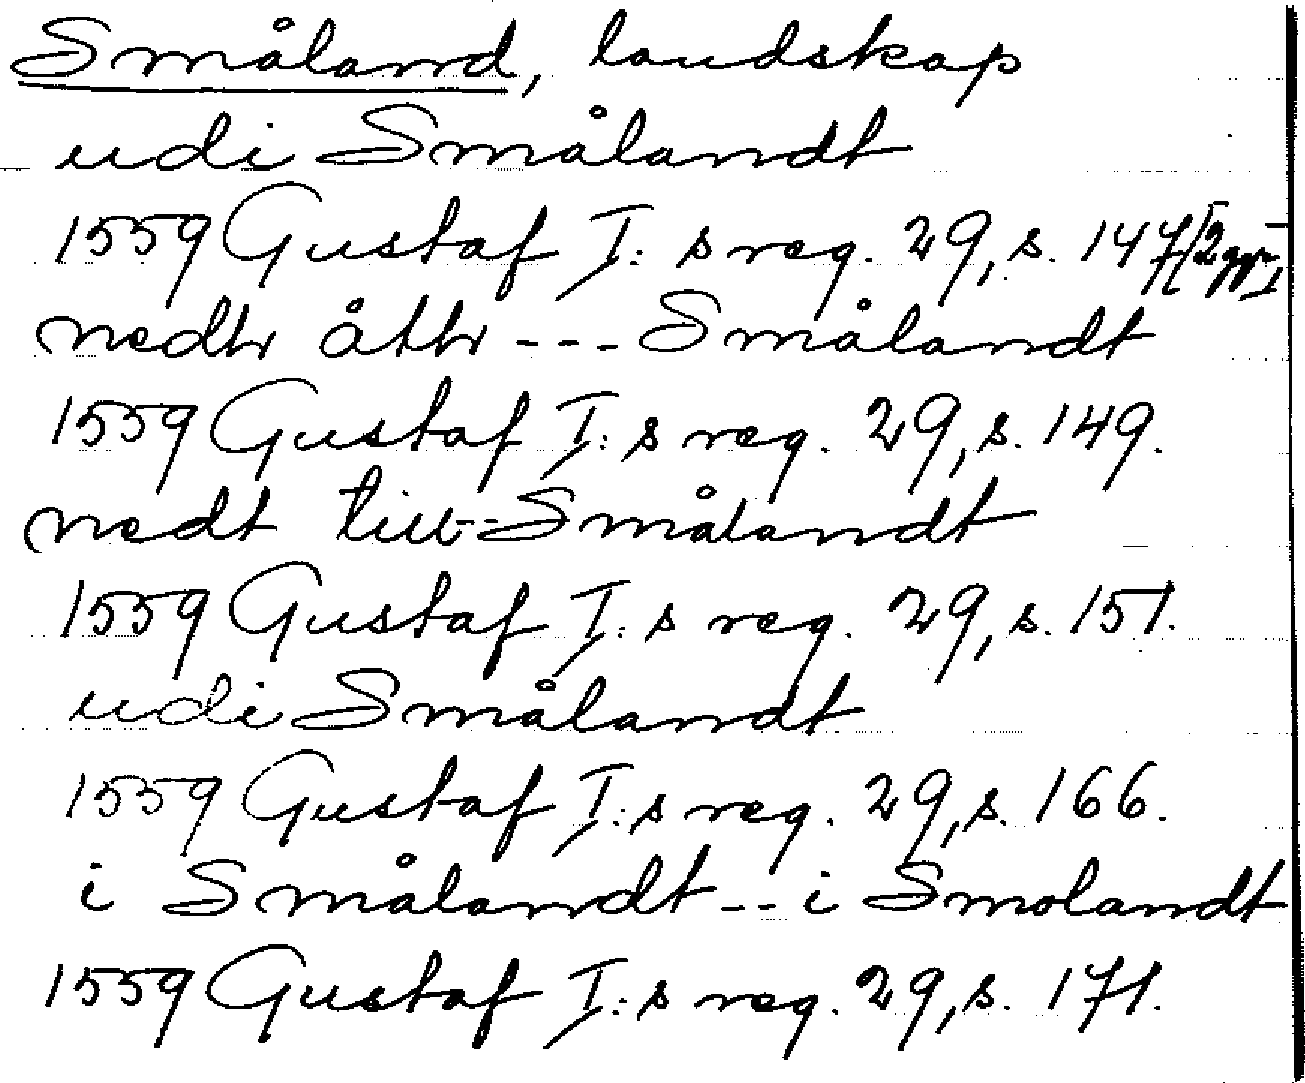 Småland, landskap
udi Smålandt
1559 Gustaf I:s reg. 29, s. 147 [2 ggr]
nedtr åttr --- Smålandt
1559 Gustaf I:s reg. 29, s. 149.
nedt till -- Smålandt
1559 Gustaf I:s reg. 29, s. 151.
udi Smålandt
1559 Gustaf I:s reg. 29, s. 166.
i Smålandt -- i Smolandt
1559 Gustaf I:s reg. 29, s. 171.